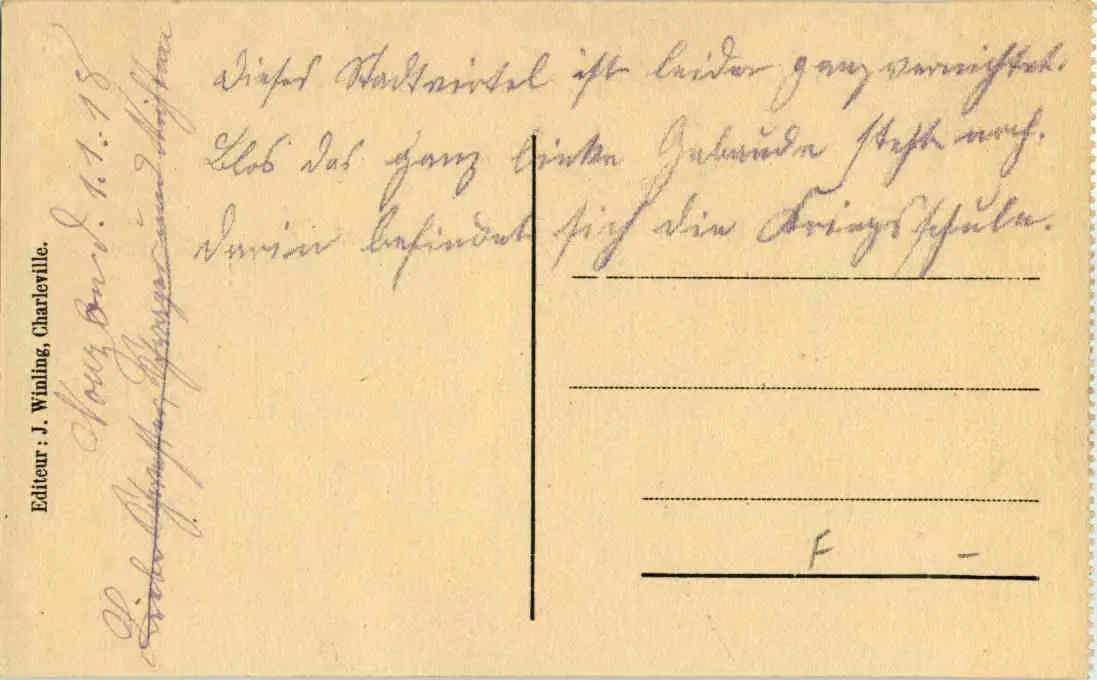 Dieses Stadtviertel ist leider ganz vernichtet.
Blos das ganz linke Gebäude steht noch.
Darin befindet sich die Kriegsschule.
Nouzon d. 1.1.18
Liebe Schwester, Schwager und Nichten
Editeur : J. Winling, Charleville.
F –